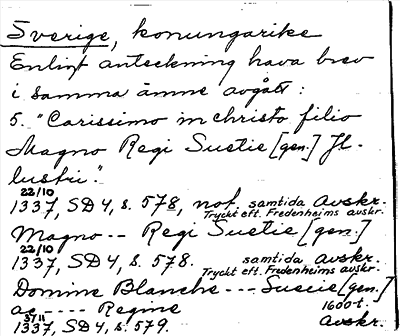 Sverige, konungarike
Enligt anteckning hava brev
i samma ämne avgått:
5. "Carissimo in christo filio
Magno Regi Suetie [gen.] Il-
lustri."
22/10
1337, SD 4, s. 578, not. samtida Avskr.
Tryckt eft. Fredenheims avskr.
Magno -- Regi Suetie [gen.]
22/10
1337, SD 4, s. 578. samtida avskr.
Tryckt eft. Fredenheims avskr.
Domine Blanche --- Suecie [gen.]
ac ---- Regine 1600-t.
5/11
1337, SD 4, s. 579. Avskr.